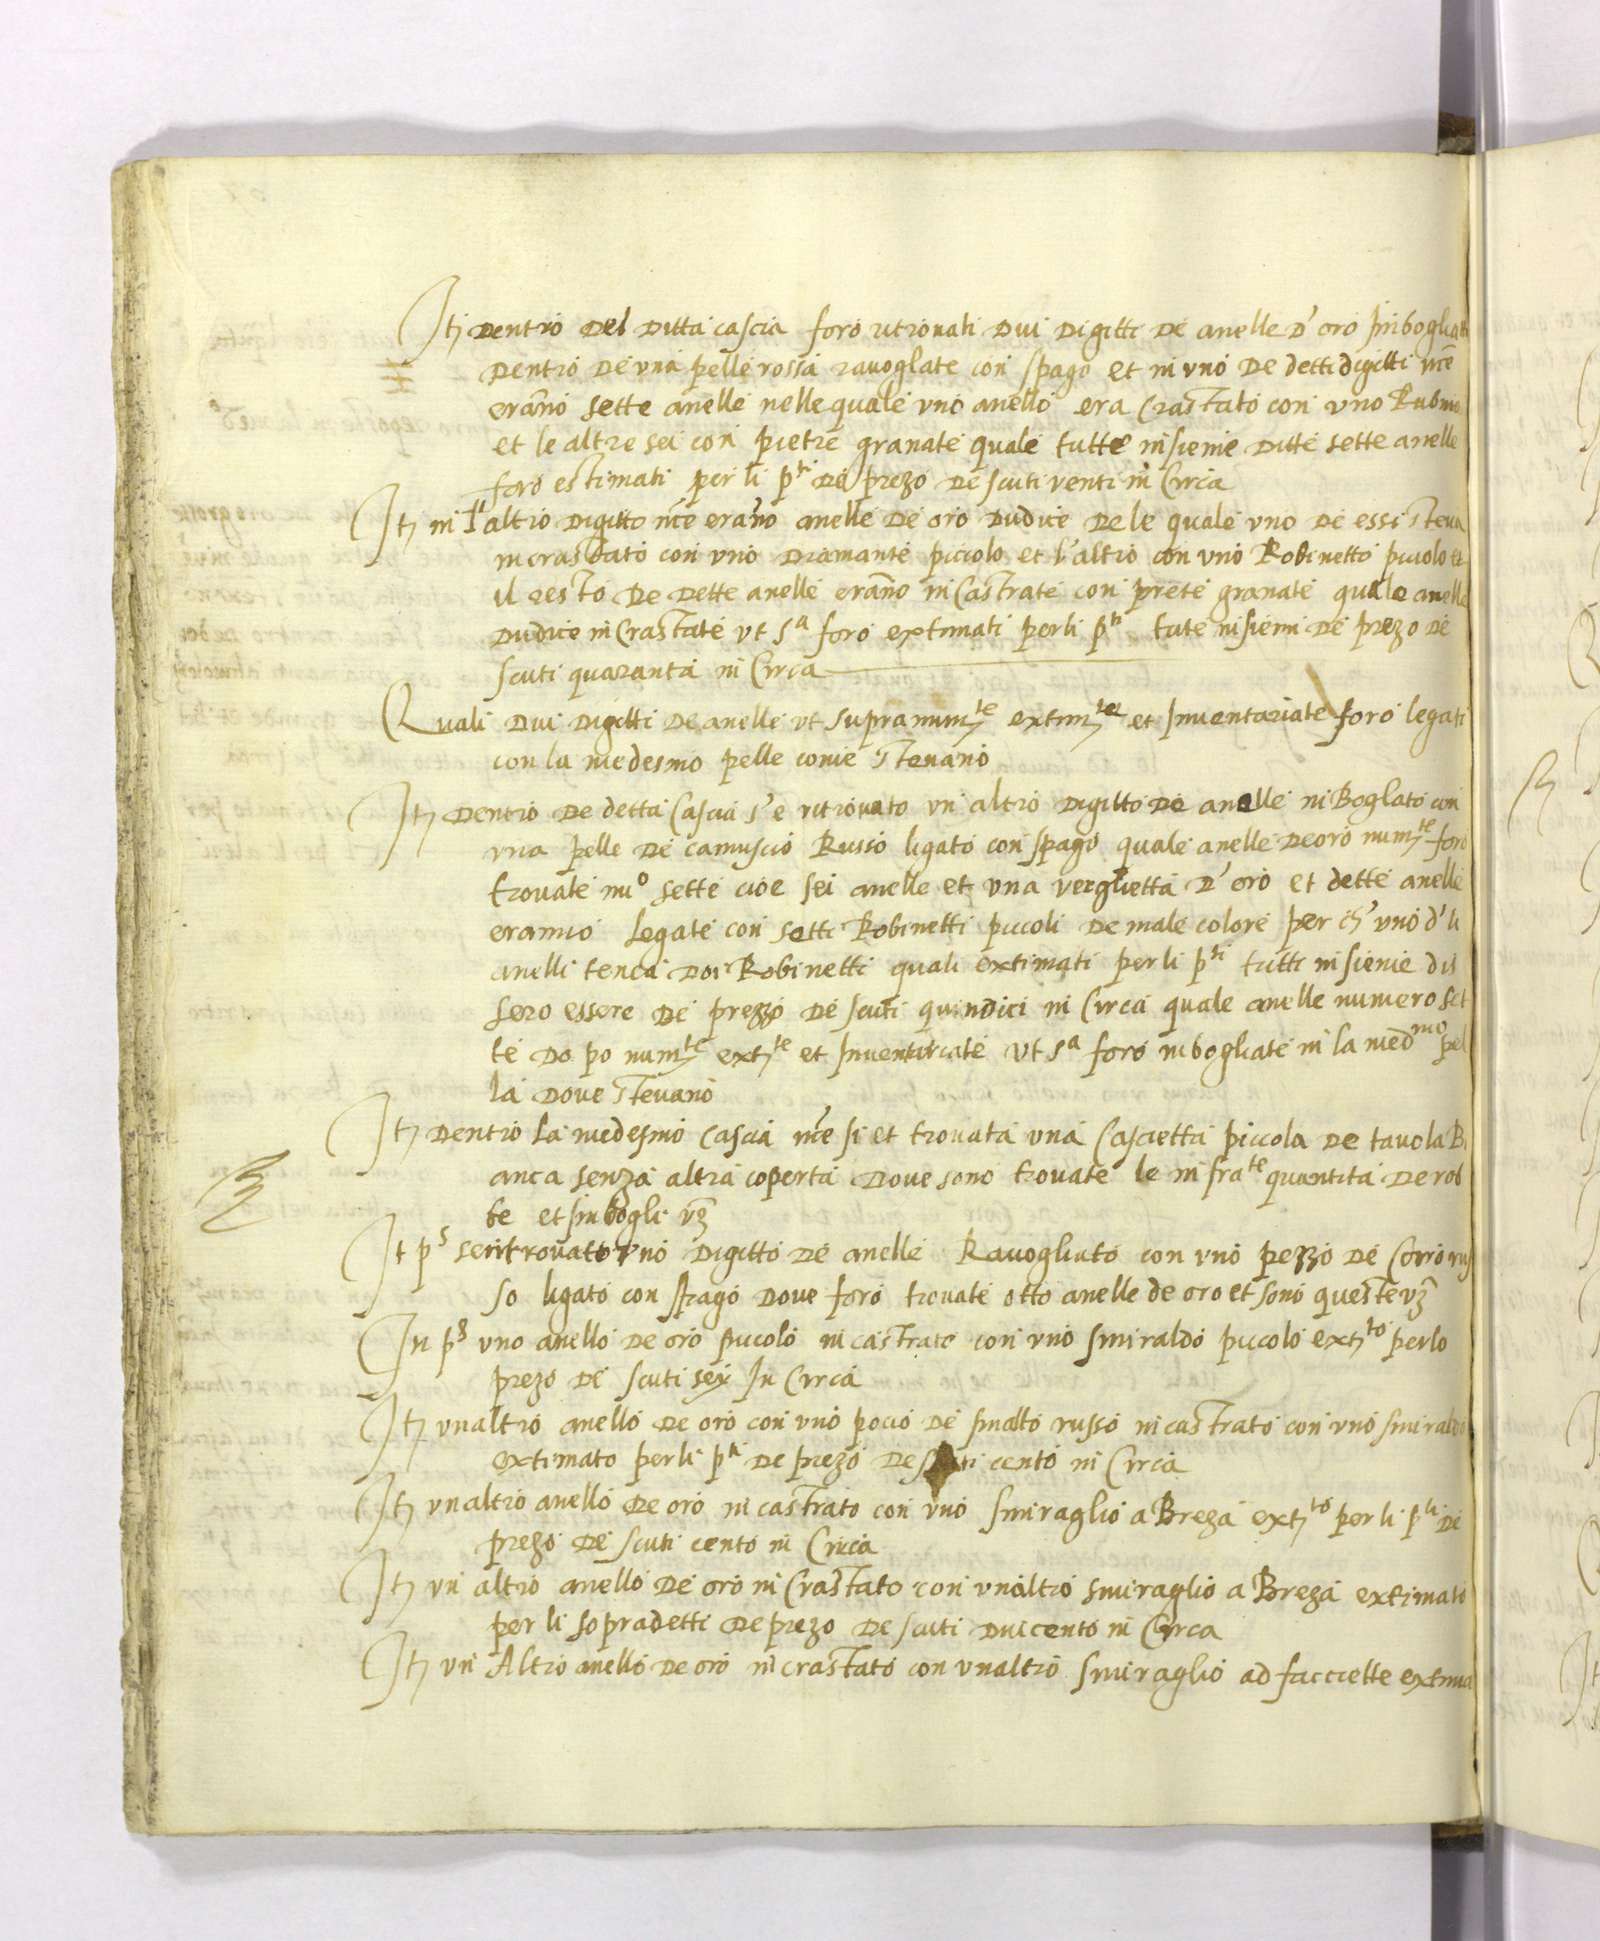 It dentro del ditta cascia foro ritrovati dui digitti de anelle d'oro imbogliati
dentro de una pelle rossa ravoglate con spago et in uno de detti digitti nce
eranno sette anelle nelle quale uno anello era crastato con uno Rubino
et le altre sei con pietre granate quale tutte insieme ditte sette anelle
foro estimati per li p^ti de prezo de scuti venti in Circa
It in l'altro digitto nce eranno anelle de oro dudice dele quale uno de essi steva
incrastato con uno diamante piccolo et l'altro con uno Robinetto piccolo et
il resto de dette anelle eranno incastrate con prete granate quale anelle
dudice incrastate ut s^a foro extimati per li p^ti tute insiemi de prezo de
scuti quaranta in Circa
Quali dui digitti de anelle ut supra num^te extim^te et inventariate foro legati
con la medesmo pelle come stevano
It dentro de detta Cascia s'e ritrovato un altro digitto de anelle inboglato con
una pelle de camuscio Russo ligato con spago quale anelle de oro num^te foro
trovate nu^o sette cioe sei anelle et una verghetta d'oro et dette anelle
eranno Legate con setti Robinetti piccoli de male colore per ch' uno d'li
anelli tenea doi Robinetti quali extimati per li p^ti tutti insieme dis
sero essere de prezzo de scuti quindici in Circa quale anelle numero set
te dopo num^te ext^te et inventariate ut s^a foro inbogliate in la med^mo pel
la dove stevano
It dentro la medesmo cascia nce si et trovata una Cascietta piccola de tavola Bi
anca senza altra coperta dove sono trovate le infra^te quantita de rob
be et imbogli vz
It p^s se ritrovatto uno digitto de anelle Ravogliato con uno pezzo de Corio rus
so ligato con spago dove foro trovate otto anelle de oro et sono queste vz
In p^s uno anello de oro piccolo incastrato con uno smiraldo piccolo ext^to per lo
prezo de scuti sey In Circa
It unaltro anello de oro con uno poco de smalto russo incastrato con uno smiraldo
extimato per li p^ti de prezo de scuti cento in Circa
It unaltro anello de oro incastrato con uno smiraglio a Breza ext^to per li p^ti de
prezo de scuti cento in Circa
It un altro anello de oro incrastato con unaltro smiraglio a Breza extimato
per li sopradetti de prezo de scuti duicento in Circa
It un Altro anello de oro incrastato con unaltro smiraglio ad facciette extima